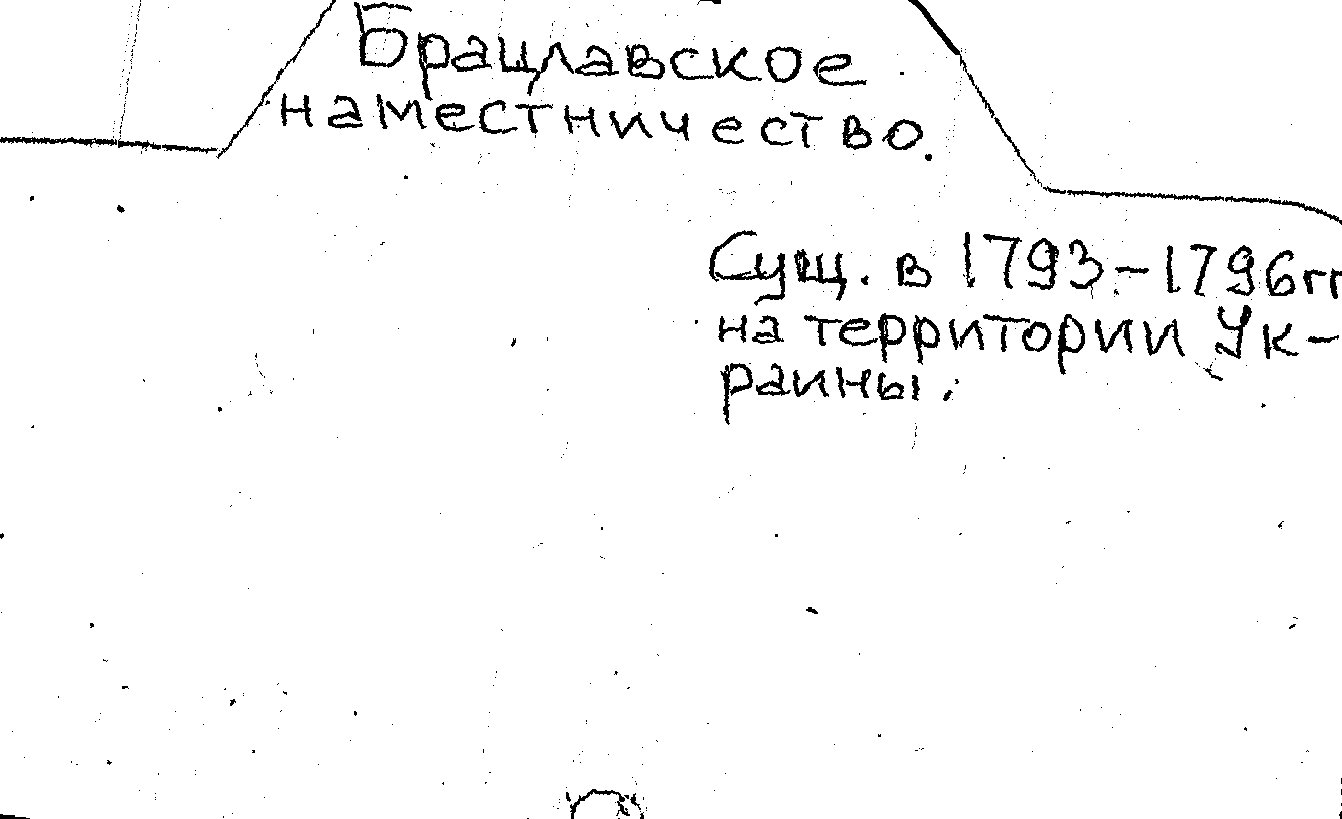 Брацлавское
наместничество.
Сущ. в 1793-1796гг
на территории Ук-
раины.